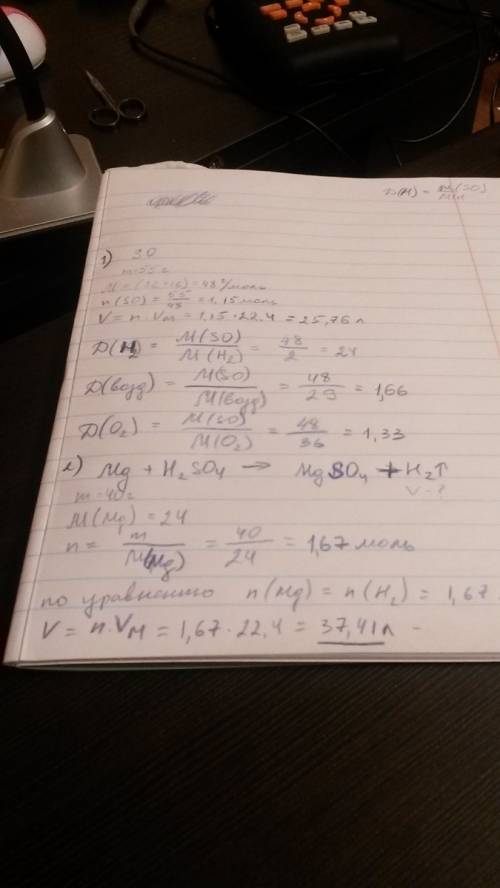 D(H) = M(SO)
1) SO
m=55г
M = (32+16) = 48 г/моль
n(SO) = 55/48 = 1,15 моль
V = n · Vм = 1,15 · 22,4 = 25,76 л
Д(H₂) = М(SO)/М(H₂) = 48/2 = 24
Д(возд) = М(SO)/М(возд) = 48/29 = 1,66
Д(O₂) = М(SO)/М(O₂) = 48/36 = 1,33
2) Mg + H₂SO₄ → MgSO₄ + H₂↑
m = 40 г V - ?
М(Mg) = 24
n = m/М(Mg) = 40/24 = 1,67 моль
по уравнению n(Mg) = n(H₂) = 1,67
V = n · Vм = 1,67 · 22,4 = 37,41 л